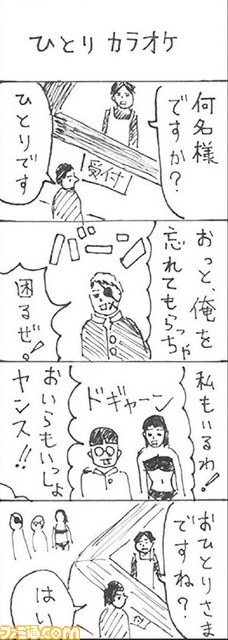 ひとりカラオケ
何名様
ですか？
受付
ひとりです
おっと、俺を
忘れてもらっちゃ
困るぜ！
私もいるわ！
ドギャーン
おいらもいっしょ
ヤンス!!
おひとりさま
ですね？
付
はい
ファミ通.com